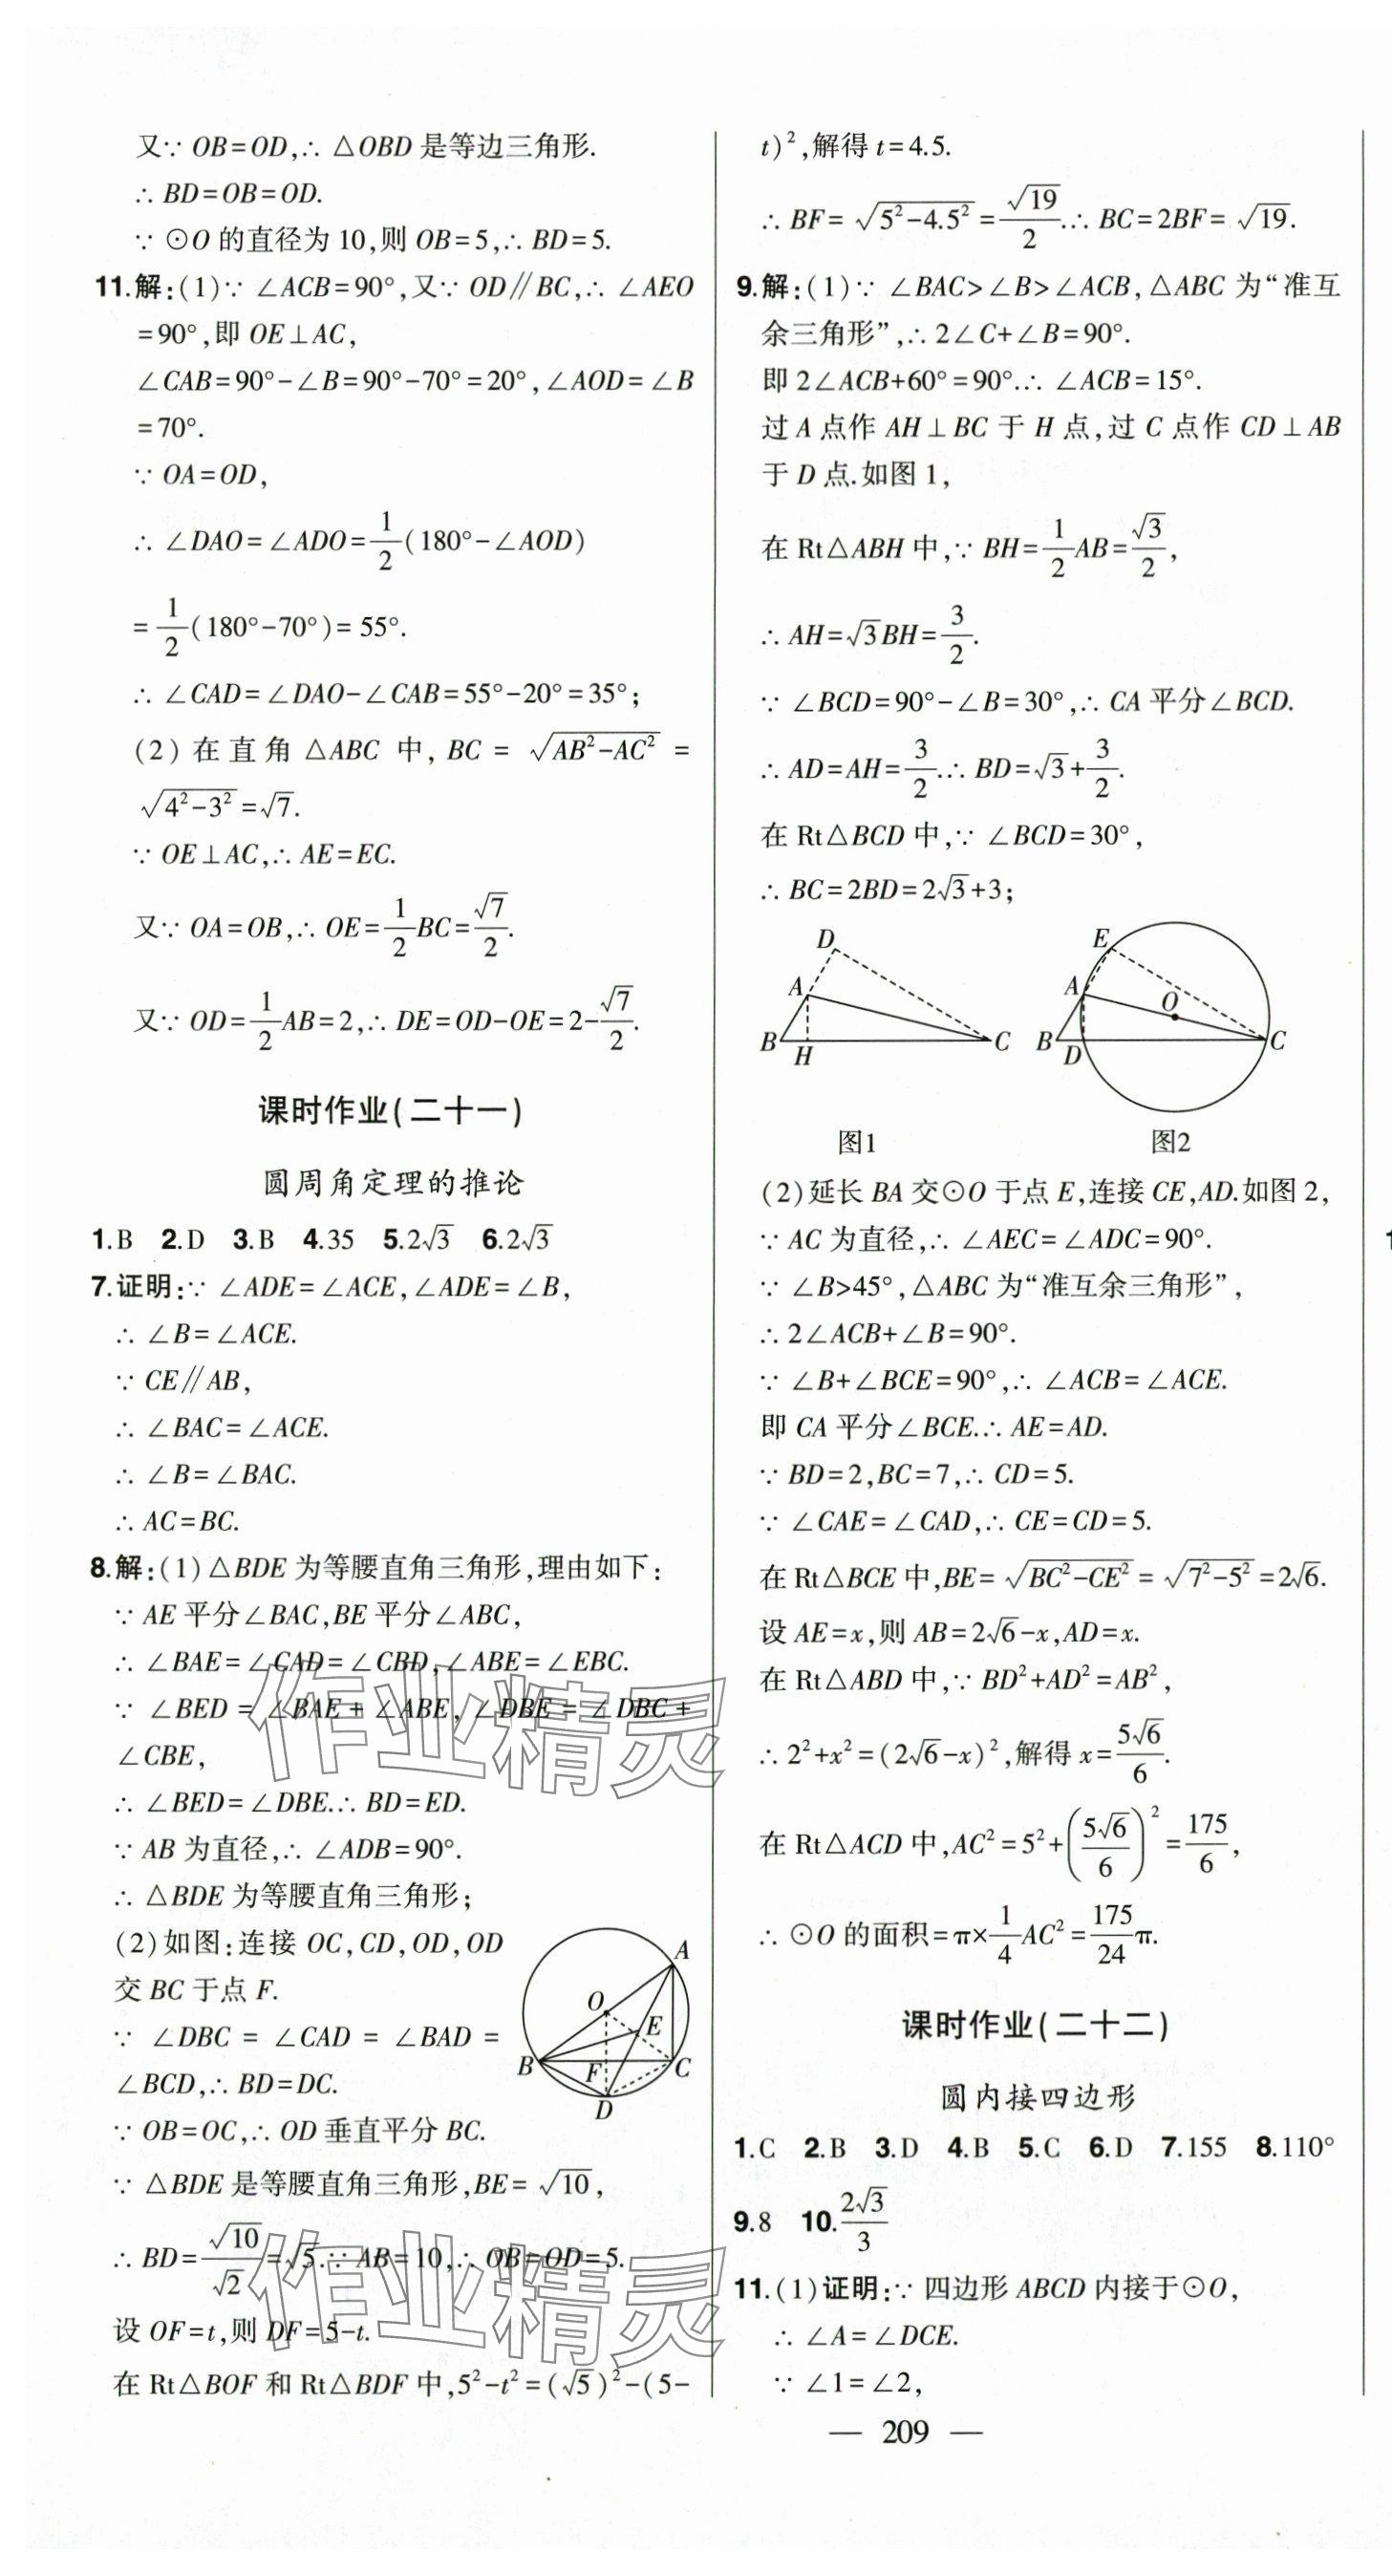 又∵ OB=OD,∴ △OBD 是等边三角形.
∴ BD=OB=OD.
∵ ⊙O 的直径为 10,则 OB=5,∴ BD=5.
11.解:(1)∵ ∠ACB=90°,又∵ OD∥BC,∴ ∠AEO
=90°,即 OE⊥AC,
∠CAB=90°-∠B=90°-70°=20°,∠AOD=∠B
=70°.
∵ OA=OD,
∴ ∠DAO=∠ADO=1/2(180°-∠AOD)
=1/2(180°-70°)=55°.
∴ ∠CAD=∠DAO-∠CAB=55°-20°=35°;
(2) 在直角 △ABC 中, BC = √(AB²-AC²) =
√(4²-3²)=√7.
∵ OE⊥AC,∴ AE=EC.
又∵ OA=OB,∴ OE=1/2BC=√7/2.
又∵ OD=1/2AB=2,∴ DE=OD-OE=2-√7/2.
课时作业(二十一)
圆周角定理的推论
1.B 2.D 3.B 4.35 5.2√3 6.2√3
7.证明:∵ ∠ADE=∠ACE,∠ADE=∠B,
∴ ∠B=∠ACE.
∵ CE∥AB,
∴ ∠BAC=∠ACE.
∴ ∠B=∠BAC.
∴ AC=BC.
8.解:(1)△BDE 为等腰直角三角形,理由如下:
∵ AE 平分∠BAC,BE 平分∠ABC,
∴ ∠BAE=∠CAD=∠CBD,∠ABE=∠EBC.
∵ ∠BED = ∠BAE + ∠ABE, ∠DBE = ∠DBC +
∠CBE,
∴ ∠BED=∠DBE.∴ BD=ED.
∵ AB 为直径,∴ ∠ADB=90°.
∴ △BDE 为等腰直角三角形;
(2)如图:连接 OC,CD,OD,OD
交 BC 于点 F.
∵ ∠DBC = ∠CAD = ∠BAD =
∠BCD,∴ BD=DC.
∵ OB=OC,∴ OD 垂直平分 BC.
∵ △BDE 是等腰直角三角形,BE=√10,
∴ BD=√10/√2=√5.∵ AB=10,∴ OB=OD=5.
设 OF=t,则 DF=5-t.
在 Rt△BOF 和 Rt△BDF 中,5²-t²=(√5)²-(5-
A
O
E
B
F
C
D
t)²,解得 t=4.5.
∴ BF=√(5²-4.5²)=√19/2.∴ BC=2BF=√19.
9.解:(1)∵ ∠BAC>∠B>∠ACB,△ABC 为“准互
余三角形”,∴ 2∠C+∠B=90°.
即 2∠ACB+60°=90°.∴ ∠ACB=15°.
过 A 点作 AH⊥BC 于 H 点,过 C 点作 CD⊥AB
于 D 点.如图 1,
在 Rt△ABH 中,∵ BH=1/2AB=√3/2,
∴ AH=√3BH=3/2.
∵ ∠BCD=90°-∠B=30°,∴ CA 平分∠BCD.
∴ AD=AH=3/2.∴ BD=√3+3/2.
在 Rt△BCD 中,∵ ∠BCD=30°,
∴ BC=2BD=2√3+3;
D
A
B
H
C
E
A
O
B
D
C
图1 图2
(2)延长 BA 交⊙O 于点 E,连接 CE,AD.如图 2,
∵ AC 为直径,∴ ∠AEC=∠ADC=90°.
∵ ∠B>45°,△ABC 为“准互余三角形”,
∴ 2∠ACB+∠B=90°.
∵ ∠B+∠BCE=90°,∴ ∠ACB=∠ACE.
即 CA 平分∠BCE.∴ AE=AD.
∵ BD=2,BC=7,∴ CD=5.
∵ ∠CAE=∠CAD,∴ CE=CD=5.
在 Rt△BCE 中,BE=√(BC²-CE²)=√(7²-5²)=2√6.
设 AE=x,则 AB=2√6-x,AD=x.
在 Rt△ABD 中,∵ BD²+AD²=AB²,
∴ 2²+x²=(2√6-x)²,解得 x=5√6/6.
在 Rt△ACD 中,AC²=5²+(5√6/6)²=175/6,
∴ ⊙O 的面积=π×1/4AC²=175/24π.
课时作业(二十二)
圆内接四边形
1.C 2.B 3.D 4.B 5.C 6.D 7.155 8.110°
9.8 10.2√3/3
11.(1)证明:∵ 四边形 ABCD 内接于⊙O,
∴ ∠A=∠DCE.
∵ ∠1=∠2,
— 209 —
作业精灵
作业精灵